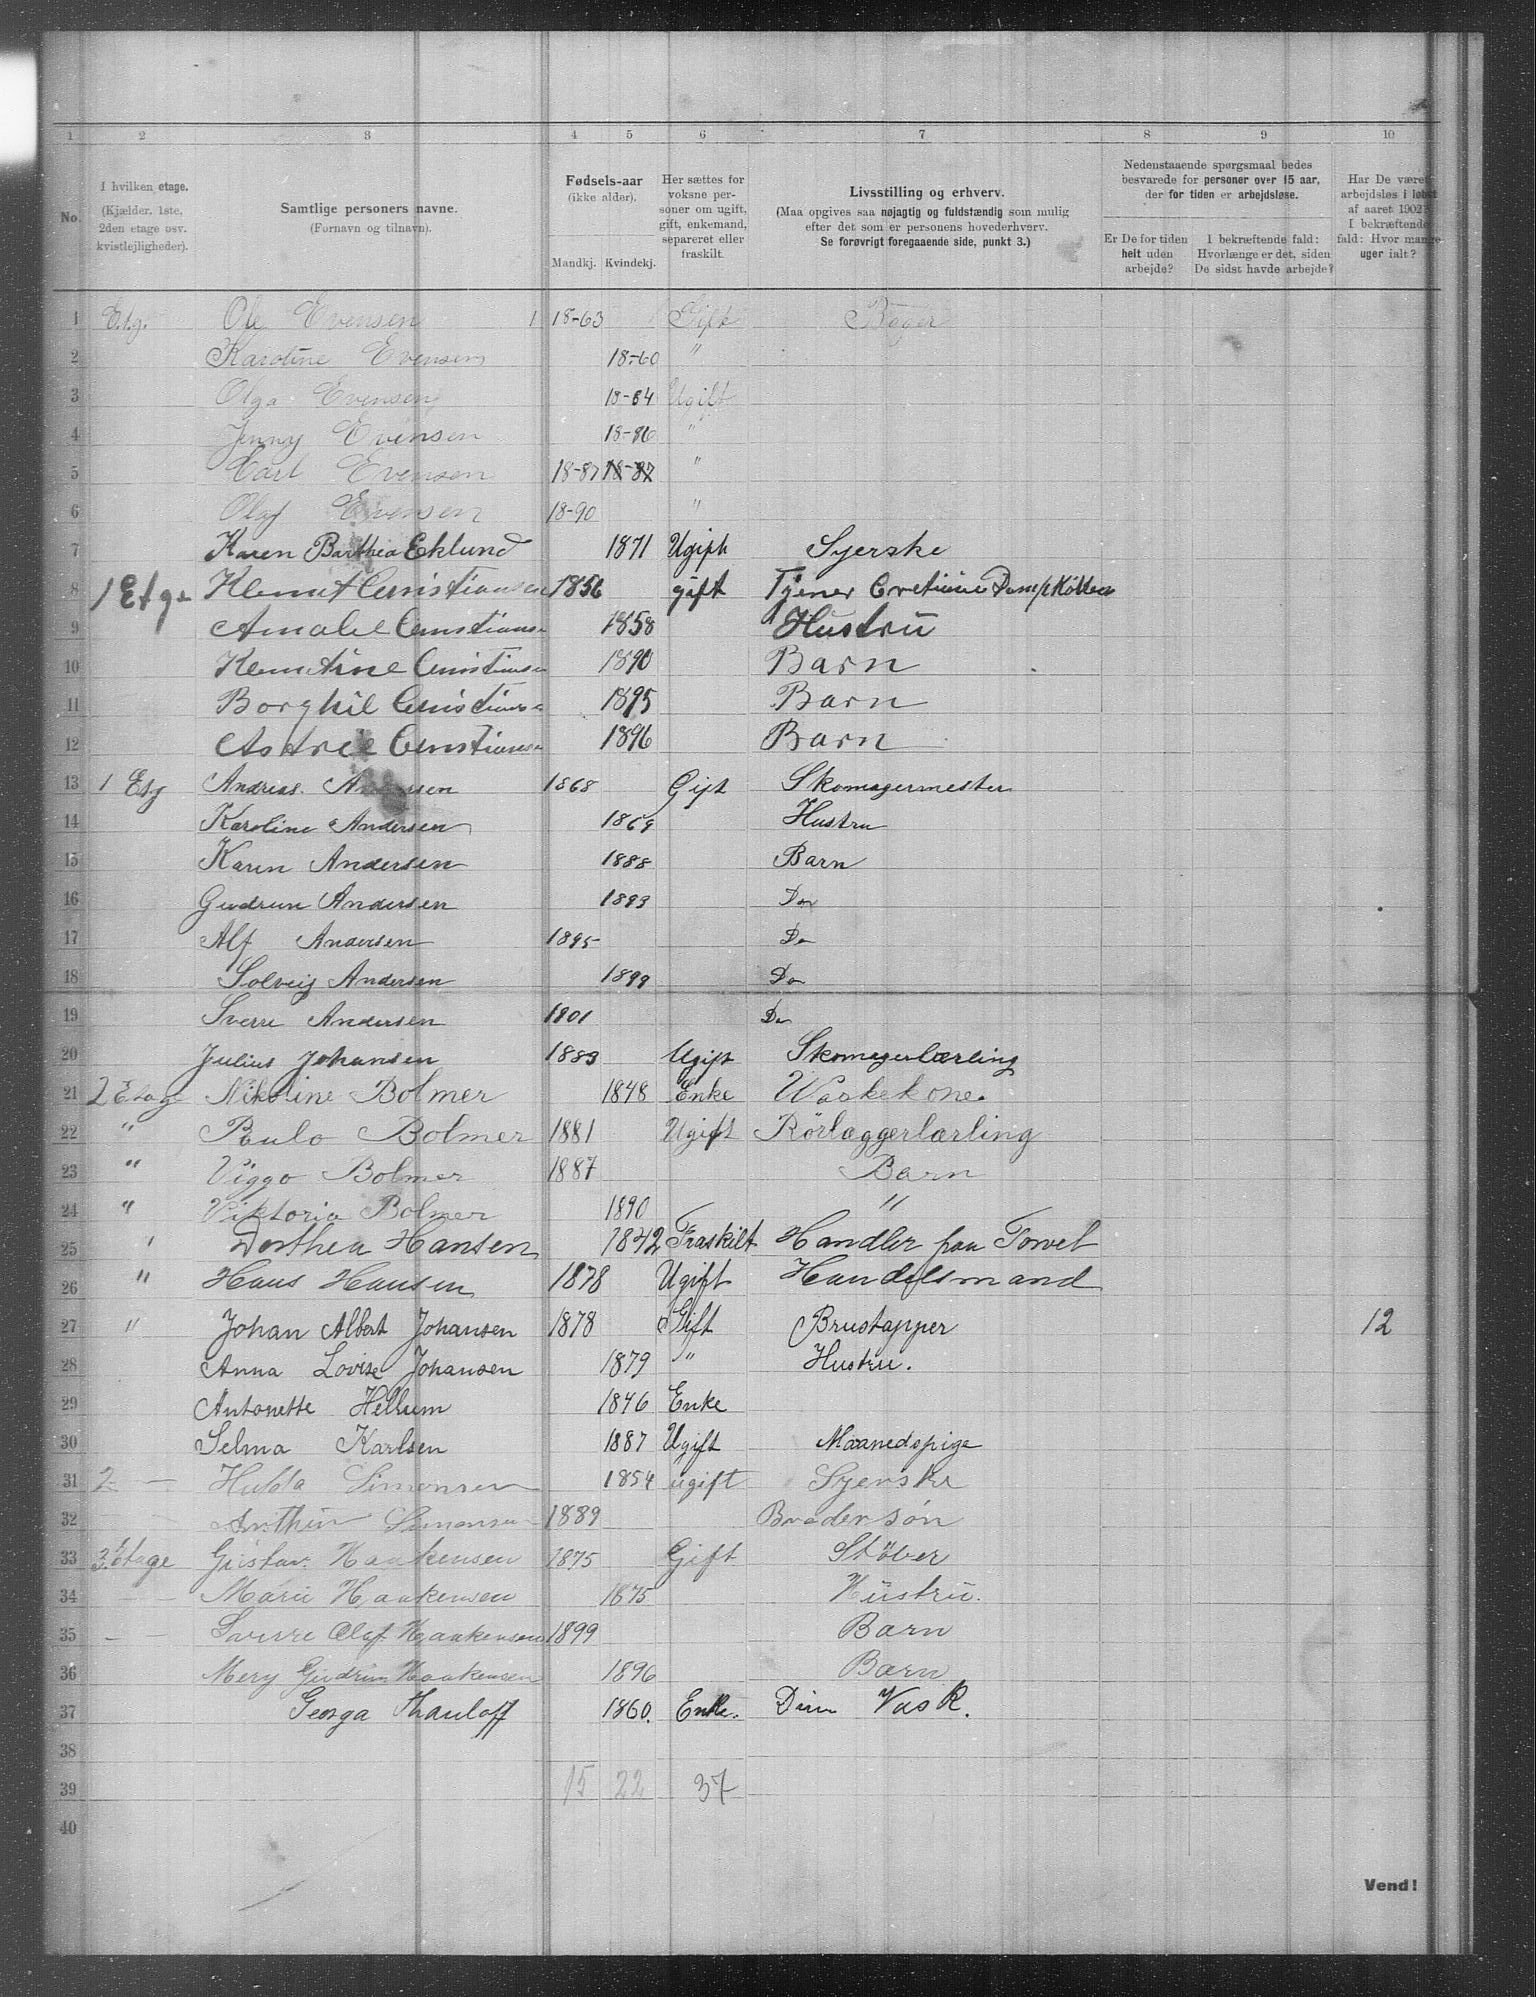 1 2 3 4 5 6 7 8 9 10
No.
I hvilken etage.
(Kjælder, 1ste,
2den etage osv.
kvistlejligheder).
Samtlige personers navne.
(Fornavn og tilnavn).
Fødsels-aar
(ikke alder).
Mandkj. Kvindekj.
Her sættes for
voksne per-
soner om ugift,
gift, enkemand,
separeret eller
fraskilt.
Livsstilling og erhverv.
(Maa opgives saa nøjagtig og fuldstændig som mulig
efter det som er personens hovederhverv.
Se forøvrigt foregaaende side, punkt 3.)
Nedenstaaende spørgsmaal bedes
besvarede for personer over 15 aar,
der for tiden er arbejdsløse.
Er De for tiden
helt uden
arbejde?
I bekræftende fald:
Hvorlænge er det, siden
De sidst havde arbejde?
Har De været
arbejdsløs i løbet
af aaret 1902?
I bekræftende
fald: Hvor mange
uger ialt?
1 Etg. Ole Evensen 1 18-63 Gift Bager
2 Karoline Evensen 18-60 "
3 Olga Evensen 18-84 Ugift
4 Jenny Evensen 18-86 "
5 Carl Evensen 18-87 18-87 "
6 Olaf Evensen 18-90 "
7 Karen Barthea Eklund 1871 Ugift Syerske
8 1 Etg. Klemet Christiansen 1856 gift Tjener
9 Amalie Christians 1858 Hustru
10 Klemetine Christiansen 1890 Barn
11 Borghil Christians 1895 Barn
12 Astrid Christians 1896 Barn
13 1 Etg Andreas Andersen 1868 Gift Skomagermester
14 Karoline Andersen 1869 Hustru
15 Karen Andersen 1888 Barn
16 Gudrun Andersen 1893 Do
17 Alf Andersen 1895 Do
18 Solveig Andersen 1899 Do
19 Sverre Andersen 1901 Do
20 Julius Johansen 1883 Ugift Skomagerlærling
21 2 Etage Nikoline Bolmer 1848 Enke Vaskekone.
22 " Paulo Bolmer 1881 Ugift Rörlæggerlærling
23 " Viggo Bolmer 1887 Barn
24 " Viktoria Bolmer 1890 "
25 " Dorthea Hansen 1842 Fraskilt Handler paa Torvet
26 " Hans Hansen 1878 Ugift Handelsmand
27 " Johan Albert Johansen 1878 Gift Brustapper 12
28 Anna Lovise Johansen 1879 " Hustru.
29 Antonette Hellum 1846 Enke
30 Selma Karlsen 1887 Ugift Maanedspige
31 2 — Hulda Simonsen 1854 ugift Syerske
32 Arthur Simonsen 1889 Brodersön
33 3 Etage Gustav Haakensen 1875 Gift Stöber
34 — Marie Haakensen 1875 Hustru.
35 — Sverre Olaf Haakensen 1899 Barn
36 Mery Gudrun Haakensen 1896 Barn
37 Georga Thauloff 1860. Enke. Din Vask.
38
39 15 22 37
40
Vend!